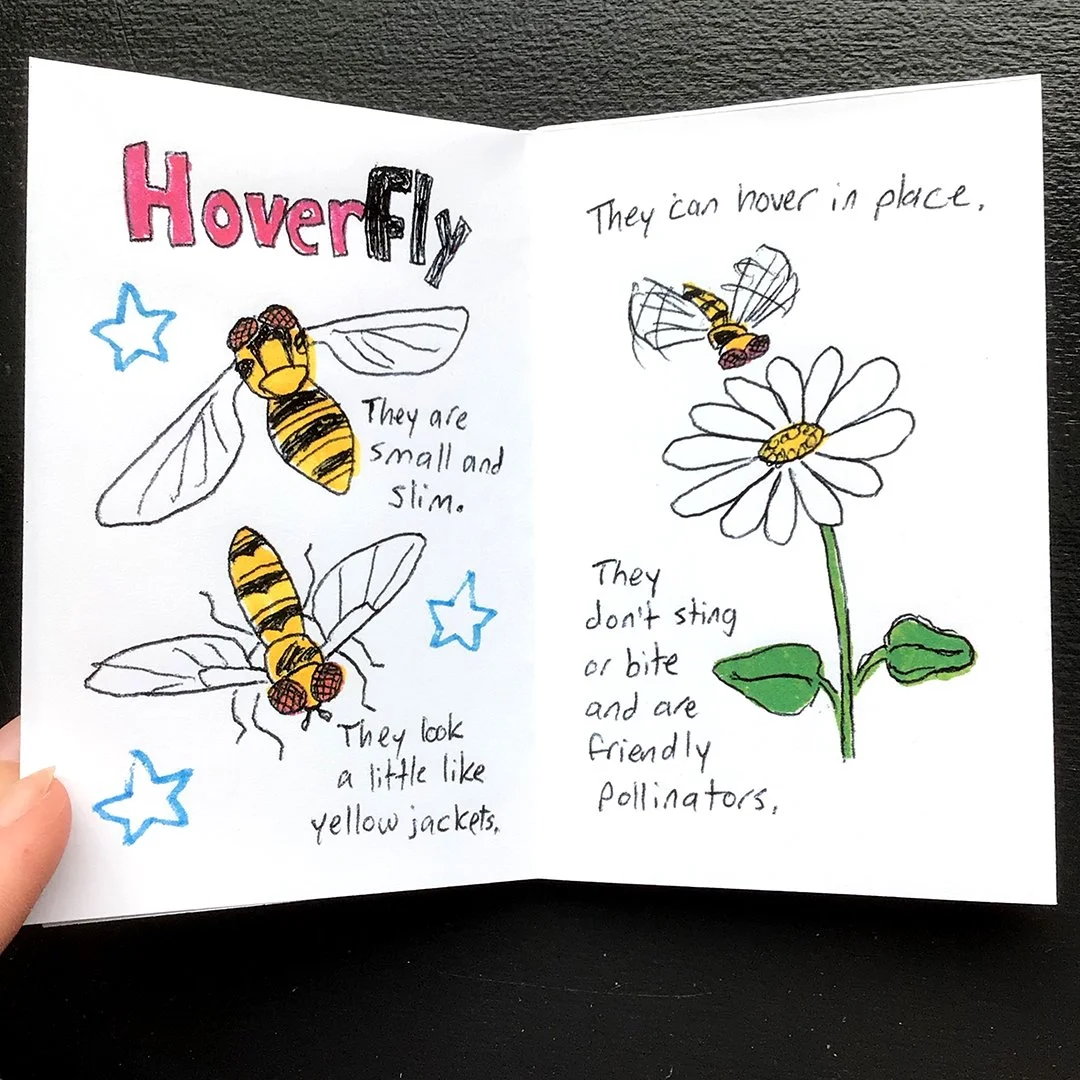 HoverFly
They are
small and
slim.
They look
a little like
yellow jackets.
They can hover in place.
They
don't sting
or bite
and are
friendly
pollinators.